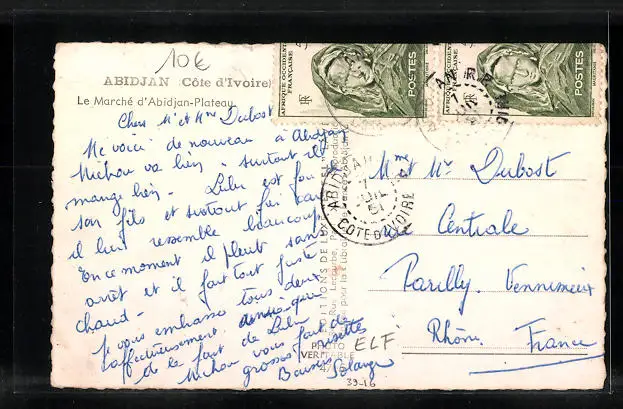 10€
ABIDJAN (Côte d'Ivoire)
Le Marché d'Abidjan-Plateau
Chers Mr et Mme Dubost
Me voici de nouveau à Abidjan
Michou va bien, surtout il
mange bien. Lulu est fou de
son fils et surtout fier car
il lui ressemble beaucoup
En ce moment il pleut sans
arrêt et il fait tout juste
chaud.
Je vous embrasse tous deux
affectueusement ainsi que
de la part de Lulu.
Michou vous fait de
grosses risettes
Baisers Solange
AFRIQUE OCCIDENTALE
FRANÇAISE
RF
POSTES
AFRIQUE OCCIDENTALE
FRANÇAISE
RF
POSTES
ABIDJAN
7
51
COTE D'IVOIRE
Mme et Mr Dubost
Centrale
Parilly. Vennissieux
Rhône. France
PHOTO
VERITABLE
ELF
33-16